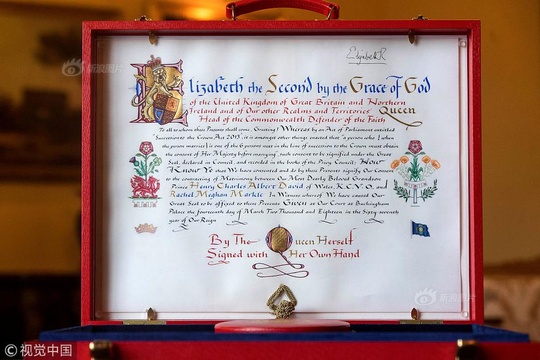 Elizabeth R
Elizabeth the Second by the Grace of God
of the United Kingdom of Great Britain and Northern
Ireland and of Our other Realms and Territories Queen
Head of the Commonwealth Defender of the Faith
To all to whom these Presents shall come, Greeting! Whereas by an Act of Parliament entitled
Succession to the Crown Act 2013, it is amongst other things enacted that "a person who (when
the person marries) is one of the 6 persons next in the line of succession to the Crown must obtain
the consent of Her Majesty before marrying", such consent to be signified under the Great
Seal, declared in Council, and recorded in the books of the Privy Council: Now
Know Ye that We have consented and do by these Presents signify Our Consent
to the contracting of Matrimony between Our Most Dearly Beloved Grandson
Prince Henry Charles Albert David of Wales, K.C.V.O., and
Rachel Meghan Markle In Witness whereof We have caused Our
Great Seal to be affixed to these Presents Given at Our Court at Buckingham
Palace the fourteenth day of March Two Thousand and Eighteen in the Sixty seventh
year of Our Reign
By The Queen Herself
Signed with Her Own Hand
新浪图片
新浪图片
© 视觉中国